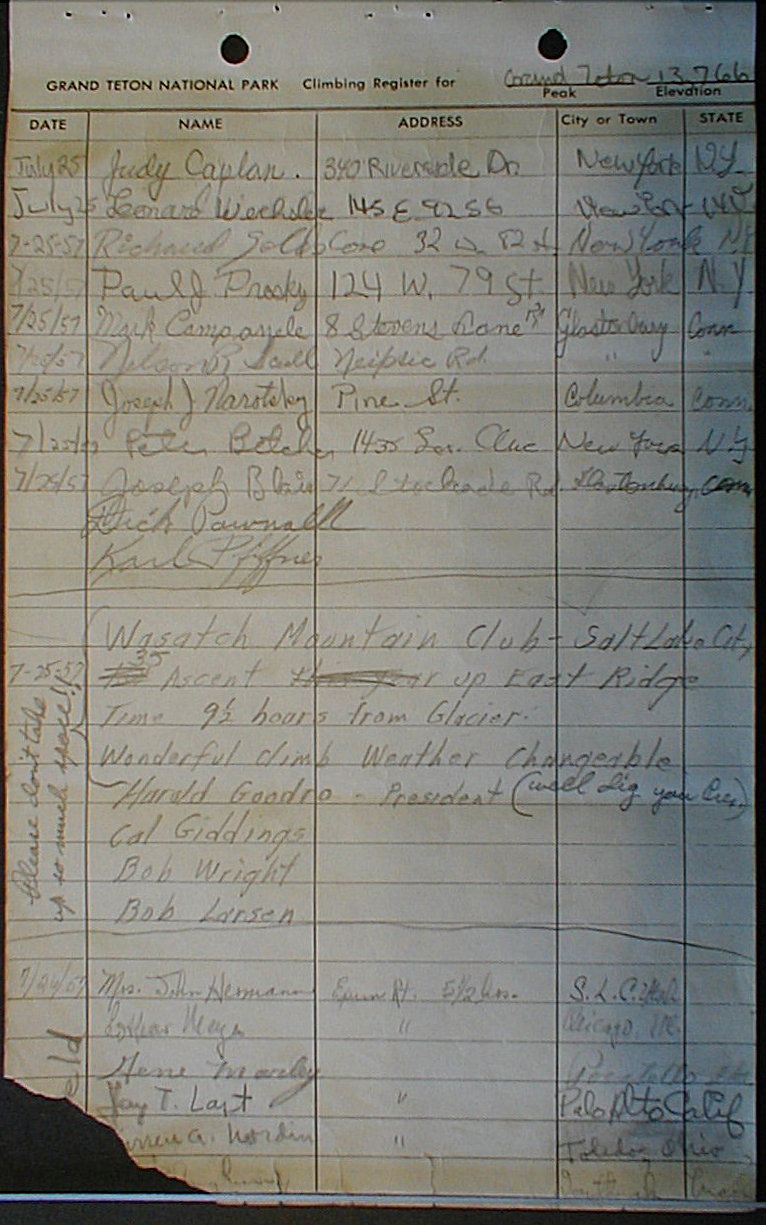 GRAND TETON NATIONAL PARK Climbing Register for Grand Teton 13,766
Peak Elevation
DATE NAME ADDRESS City or Town STATE
July 25 Judy Caplan. 340 Riverside Dr. New York N.Y.
July 25 Leonard 145 E 92 St New York NY
7-25-57 Richard 32 W. 82 St. New York NY
7/25/57 Paul J. Prosky 124 W. 79 St. New York N.Y.
7/25/57 Mark Campanele 8 Stevens Lane Glastonbury Conn
Nelson R. Neipsic Rd. " "
7/25/57 Joseph J Narotsky Pine St. Columbia Conn.
7/25/57 Peter New York N.Y.
7/25/57 Joseph 71 Stockade Rd. Glastonbury, Conn
Dick Pownall
Karl Pfiffner
Wasatch Mountain Club - Salt Lake City
7-25-57 Ascent up East Ridge
Time 9½ hours from Glacier.
Wonderful climb Weather Changeable
Harold Goodro - President (well dig you
Cal Giddings
Bob Wright
Bob Larsen
Please don't take
up so much space!!
7/26/57 Mrs. John Hermann Exum Rt. 5½ hrs. S.L.C. Utah
" Chicago, Ill.
Gene
Jay T. Last " Palo Alto Calif
A. Nordin " Toledo, Ohio